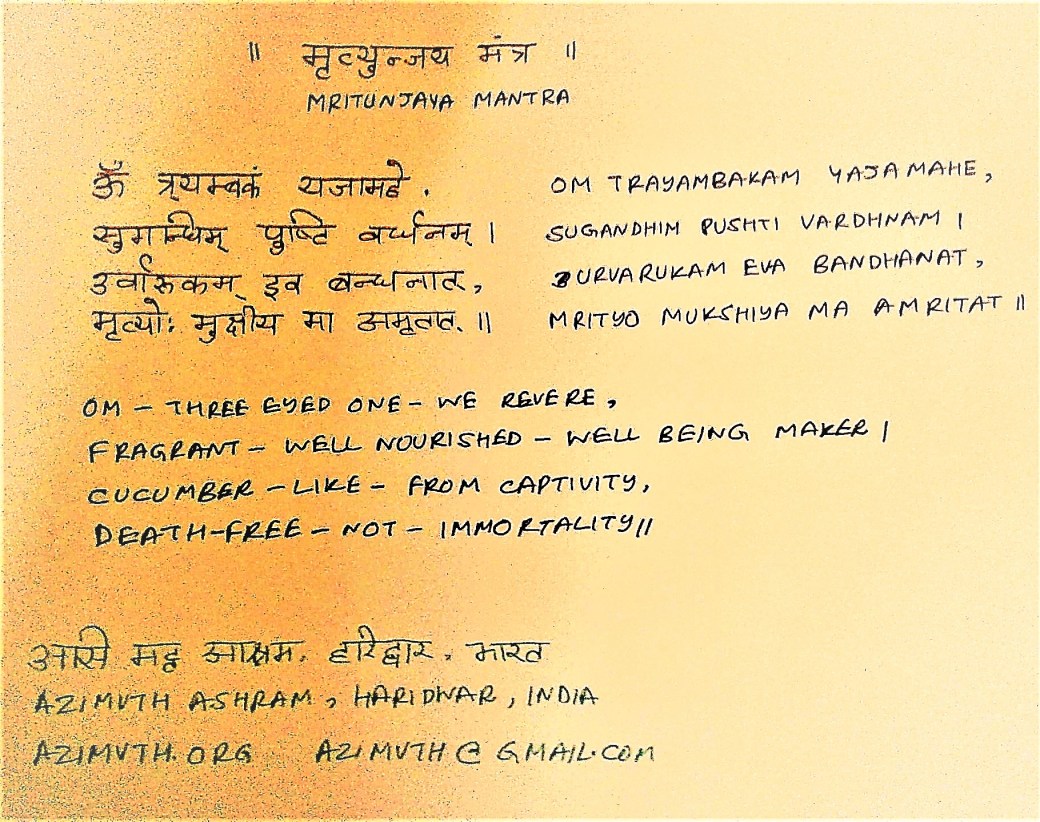 ॥ मृत्युन्जय मंत्र ॥
MRITUNJAYA MANTRA
ॐ त्र्यम्बकं यजामहे . OM TRAYAMBAKAM YAJAMAHE,
सुगन्धिम् पुष्टि वर्धनम् | SUGANDHIM PUSHTI VARDHNAM |
उर्वारुकम् इव बन्धनात् , URVARUKAM EVA BANDHANAT,
मृत्योः मुक्षीय मा अमृतात् ॥ MRITYO MUKSHIYA MA AMRITAT ॥
OM – THREE EYED ONE – WE REVERE,
FRAGRANT – WELL NOURISHED – WELL BEING MAKER |
CUCUMBER – LIKE – FROM CAPTIVITY,
DEATH-FREE – NOT – IMMORTALITY ॥
आश्रम, हरिद्वार, भारत
AZIMUTH ASHRAM, HARIDWAR, INDIA
AZIMUTH.ORG AZIMUTH@GMAIL.COM